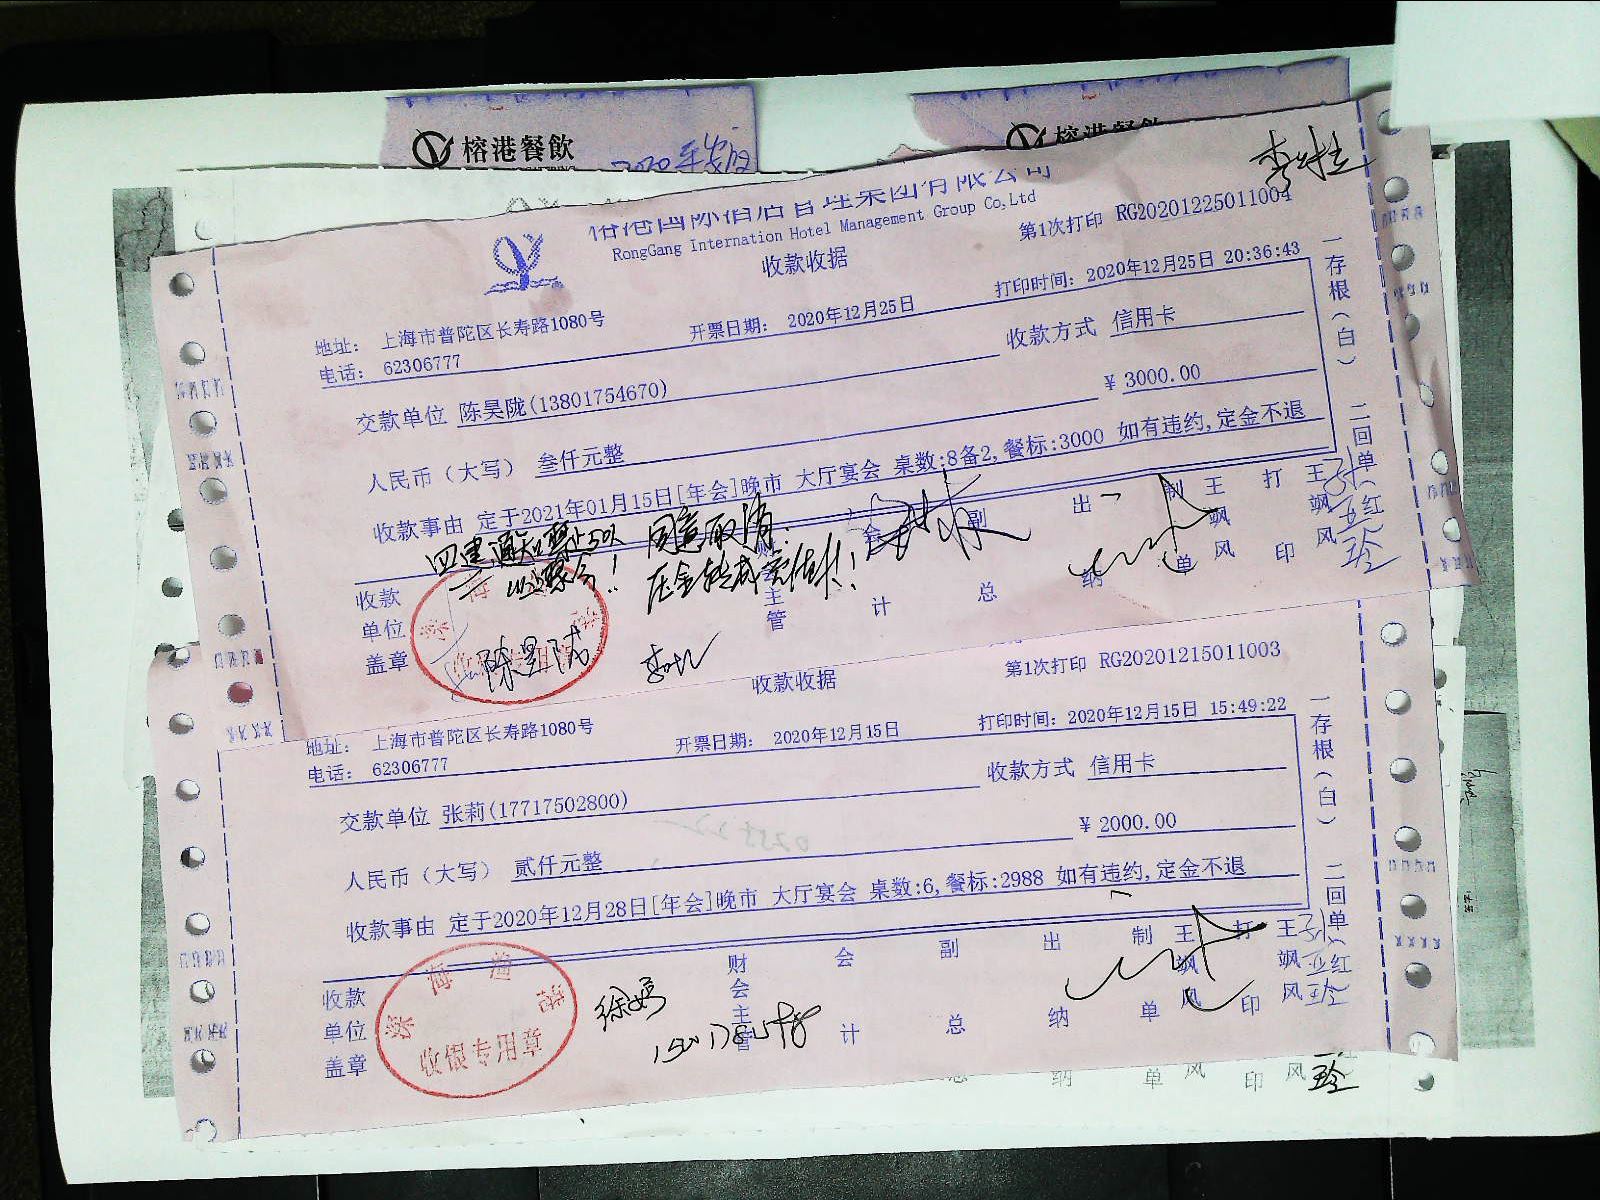 榕港餐飲
2020年
榕港餐飲
榕港国际酒店管理集团有限公司
RongGang Internation Hotel Management Group Co,Ltd
收款收据
第1次打印 RG20201225011004
地址： 上海市普陀区长寿路1080号
电话： 62306777
开票日期： 2020年12月25日
打印时间：2020年12月25日 20:36:43
收款方式 信用卡
交款单位 陈昊陇(13801754670)
¥ 3000.00
人民币（大写） 叁仟元整
收款事由 定于2021年01月15日[年会]晚市 大厅宴会 桌数:8备2,餐标:3000 如有违约,定金不退
一存根（白） 二回单（红
同意取消.
收款单位盖章
财会主管
会计
副总
出纳
制单
王飒风
打印
王飒风
陈昊陇
收款收据
第1次打印 RG20201215011003
地址： 上海市普陀区长寿路1080号
电话： 62306777
开票日期： 2020年12月15日
打印时间：2020年12月15日 15:49:22
收款方式 信用卡
交款单位 张莉(17717502800)
¥ 2000.00
人民币（大写） 贰仟元整
收款事由 定于2020年12月28日[年会]晚市 大厅宴会 桌数:6,餐标:2988 如有违约,定金不退
一存根（白） 二回单（红
收款单位盖章
收银专用章
财会主管
会计
副总
出纳
制单
王飒风
打印
王飒风
总 纳 单 风 印 风